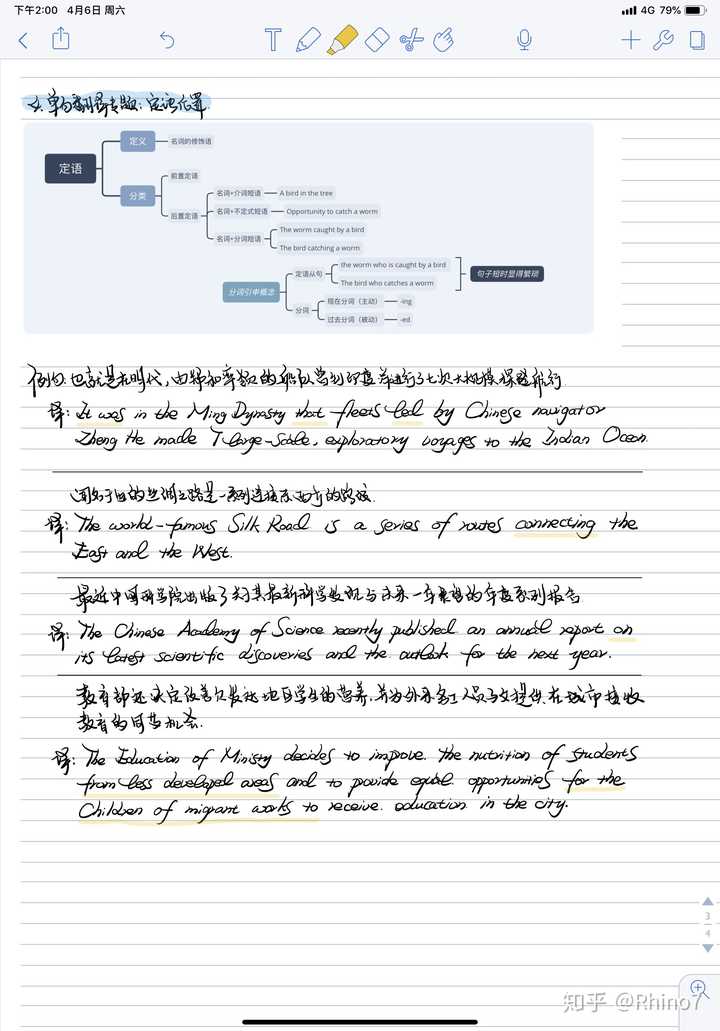 下午2:00 4月6日 周六
4G 79%
T
单句翻译专题:定语位置
定语
定义
名词的修饰语
分类
前置定语
后置定语
名词+介词短语
A bird in the tree
名词+不定式短语
Opportunity to catch a worm
名词+分词短语
The worm caught by a bird
The bird catching a worm
分词引申概念
定语从句
the worm who is caught by a bird
The bird who catches a worm
句子短时显得繁琐
分词
现在分词(主动)
-ing
过去分词(被动)
-ed
例句:也就是在明代,由郑和率领的船队驾到印度洋进行了七次大规模探险航行
译: It was in the Ming Dynasty that fleets led by Chinese navigator
Zheng He made 7 large-scale, exploratory voyages to the Indian Ocean.
闻名于世的丝绸之路是一系列连接东西方的路线.
译: The world-famous Silk Road is a series of routes connecting the
East and the West.
最近中国科学院出版了关于其最新科学发现与未来一年展望的年度系列报告
译: The Chinese Academy of Science recently published an annual report on
its latest scientific discoveries and the outlook for the next year.
教育部还决定改善欠发达地区学生的营养,并为外来务工人员子女提供在城市接收
教育的同等机会.
译: The Education of Ministry decides to improve. the nutrition of students
from less developed areas and to provide equal opportunities for the
Children of migrant works to receive. education in the city.
3
4
知乎 @Rhino7